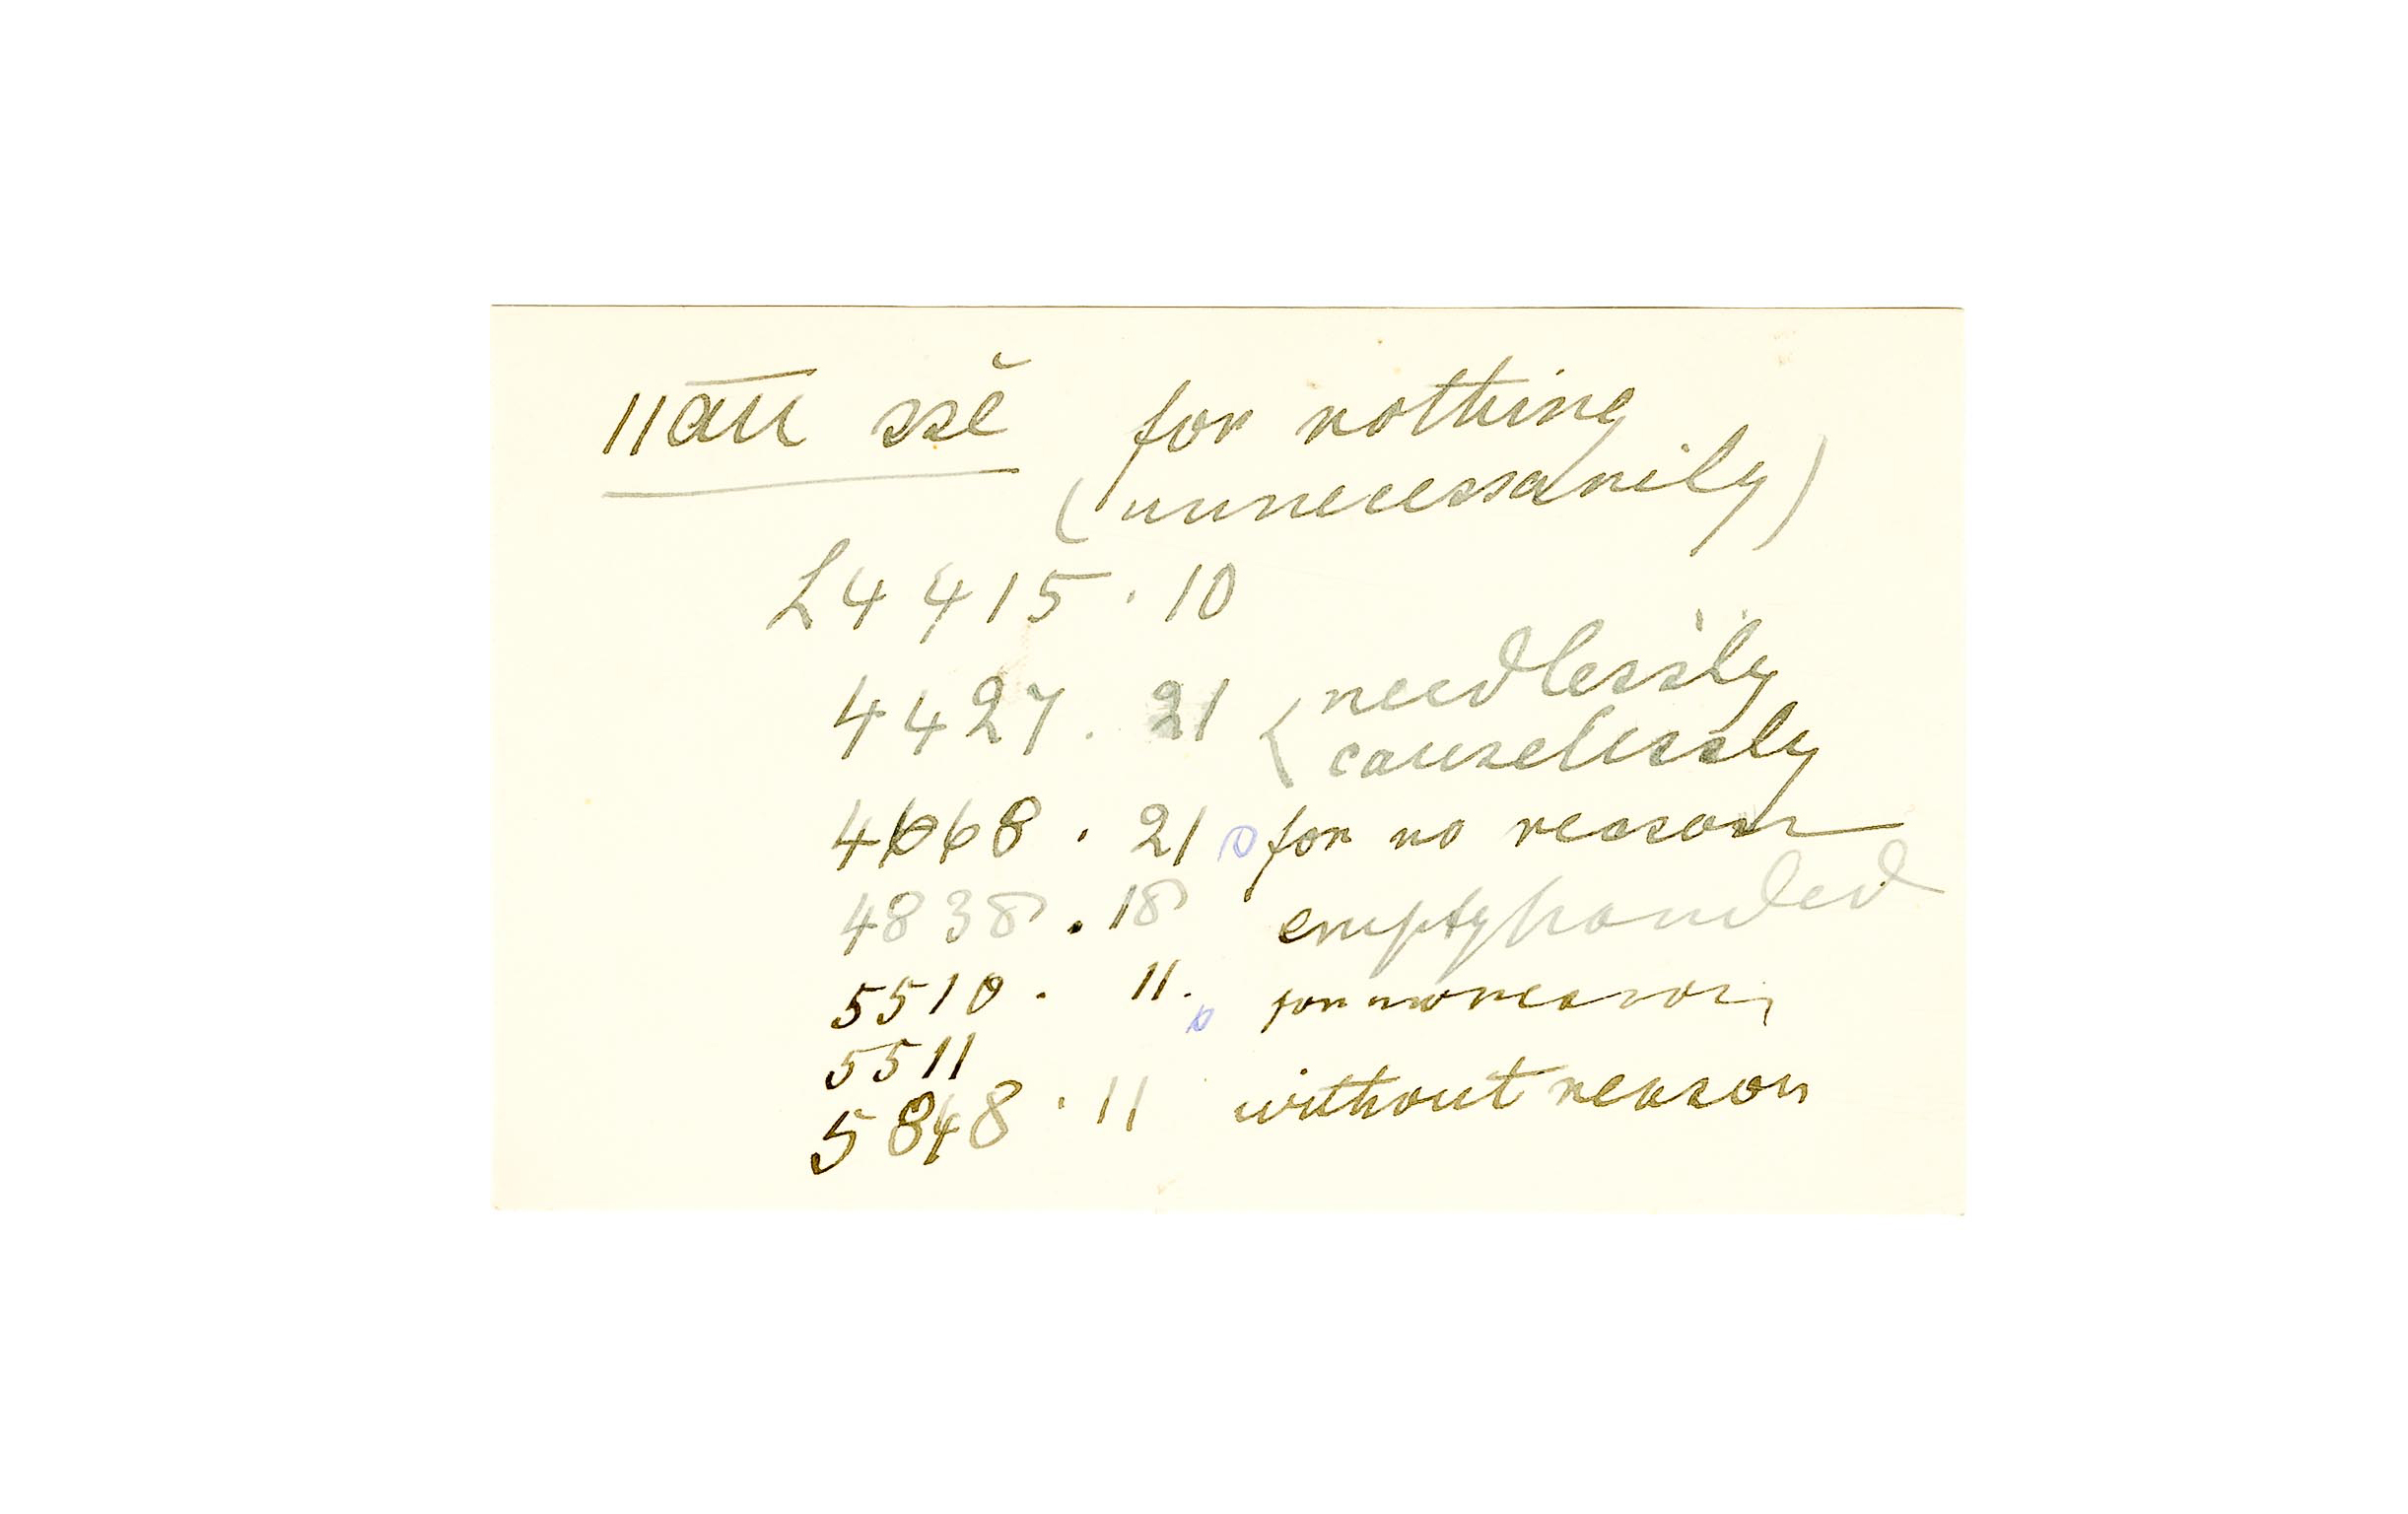 ǁa͞u ssĕ for nothing
(unnecessarily)
L4 415 · 10
4427 . 21 { needlessly
causelessly
4668 · 21 for no reason
4838 . 18 emptyhanded
5510 . 11. for no reason
5511
5848 · 11 without reason